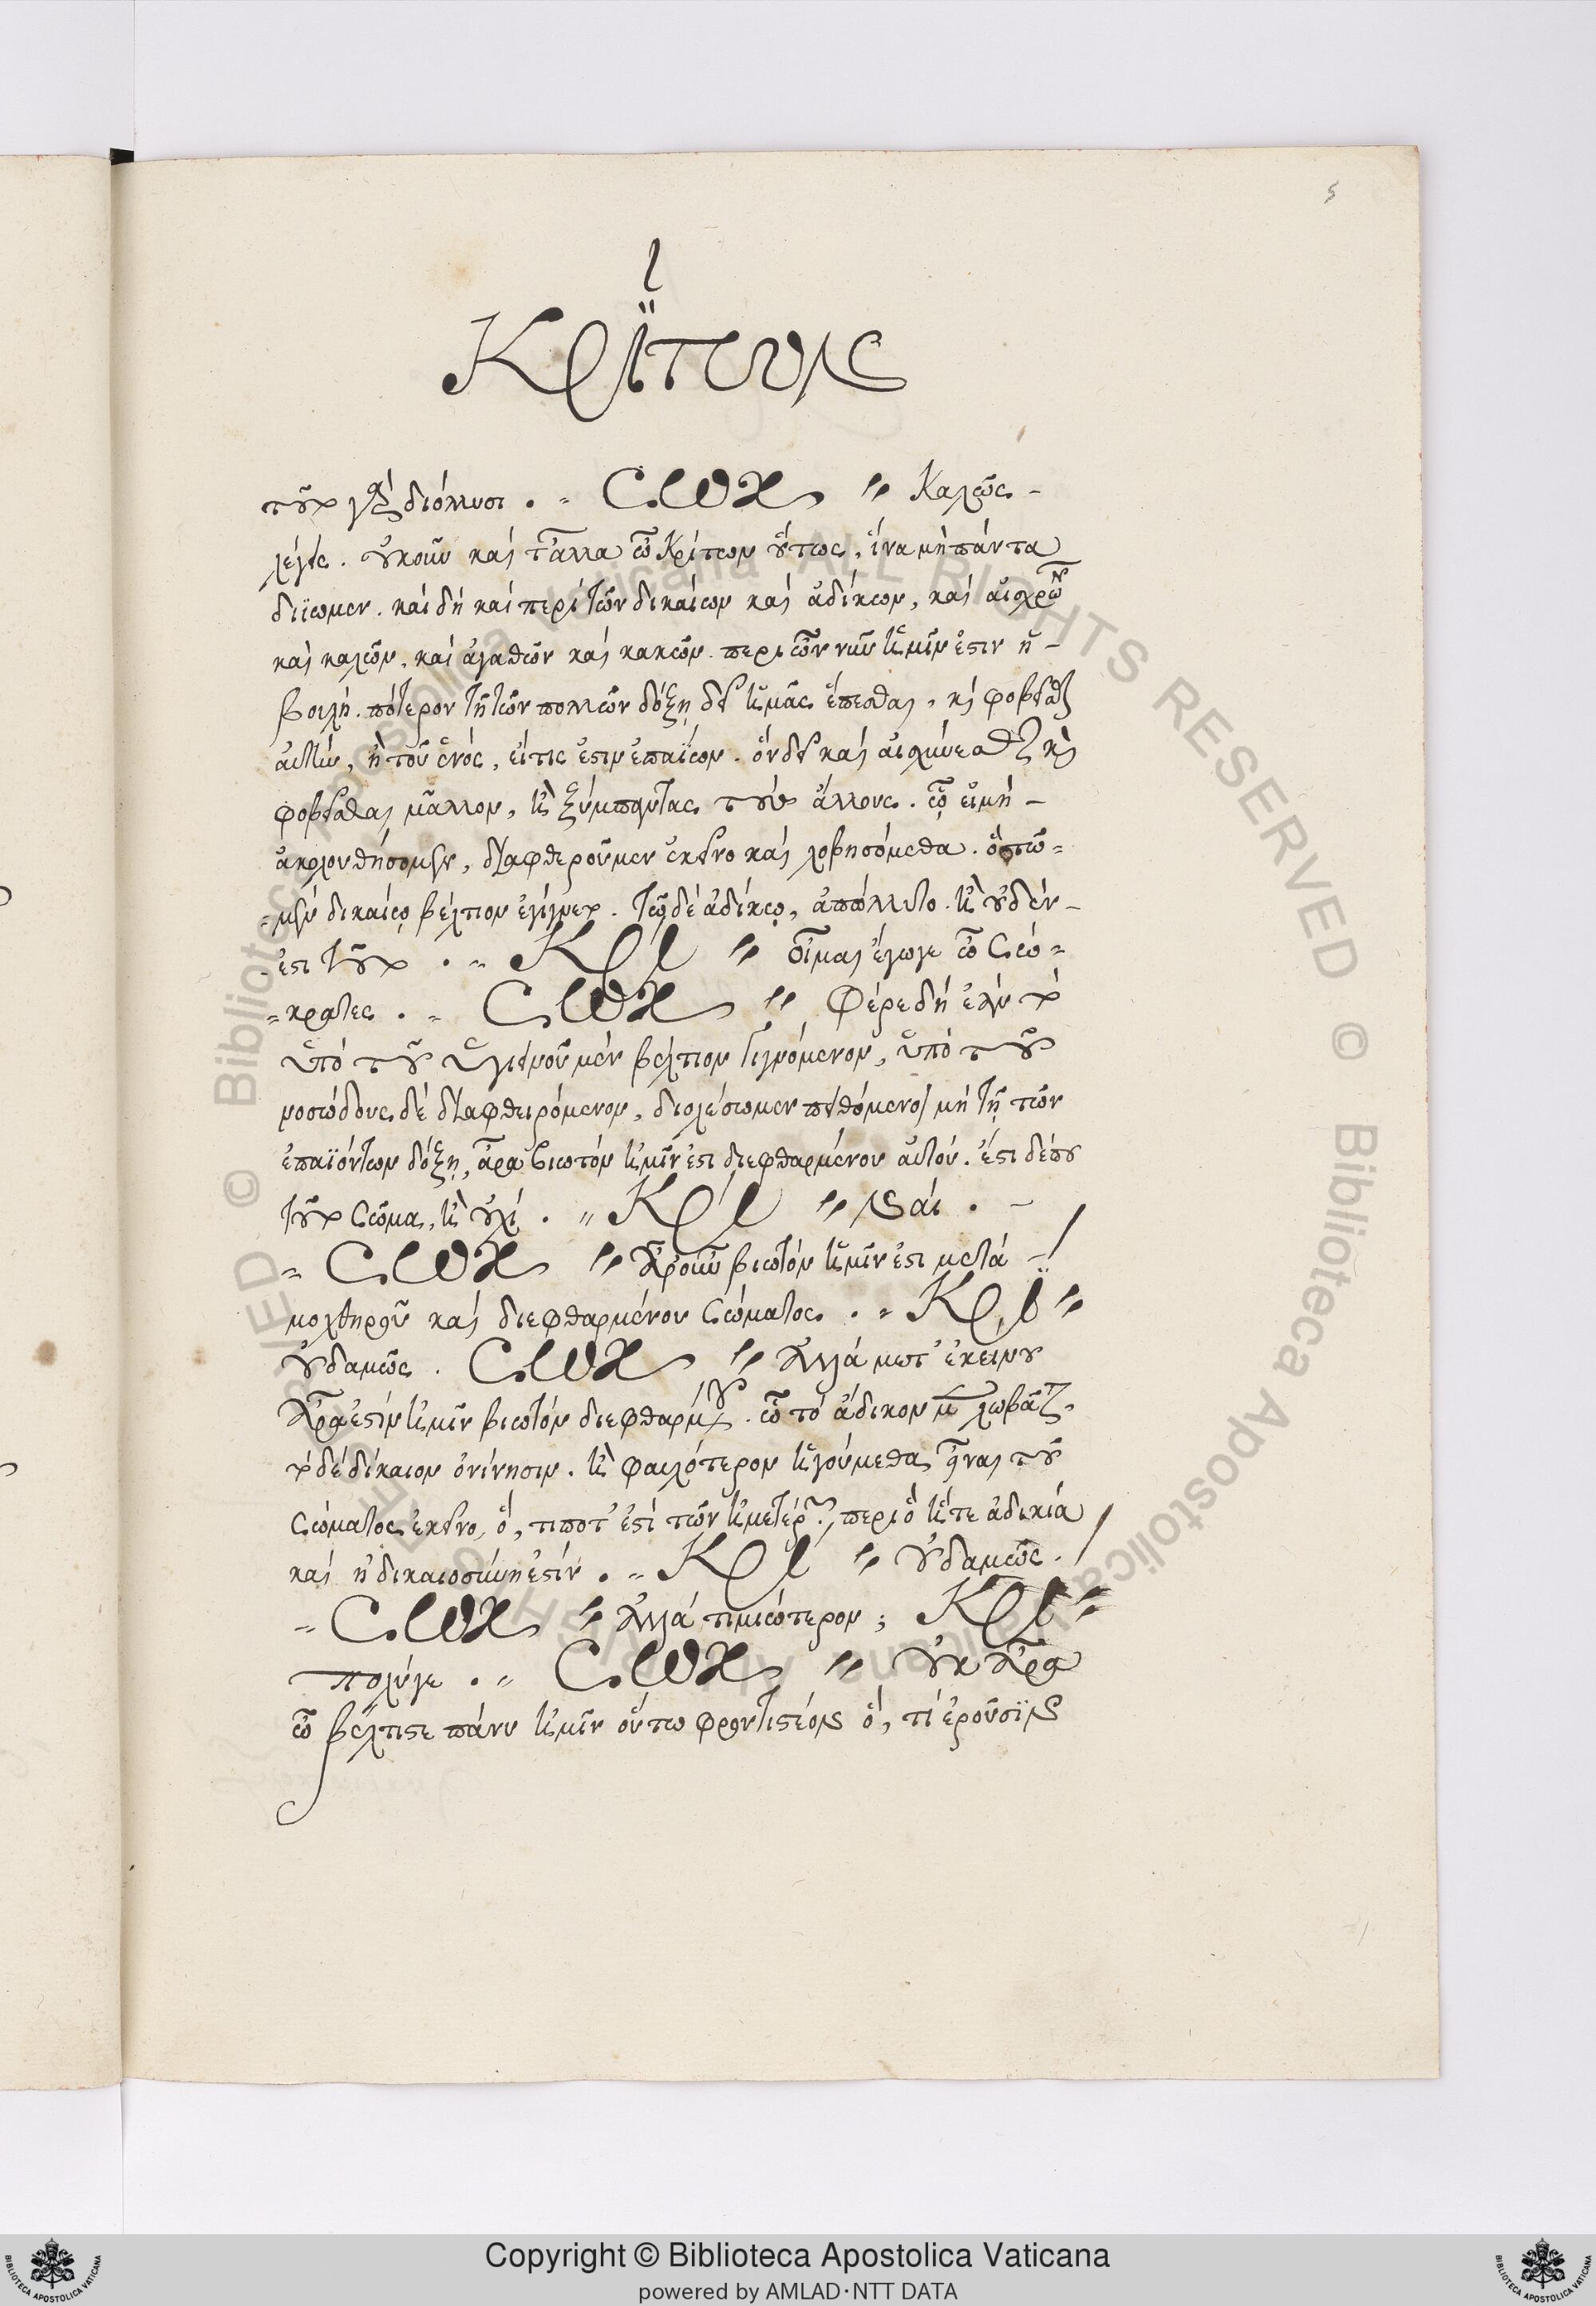 5
Κρίτων
τοῦτο γὰρ διόλλυσι . ΣΩΚ Καλῶς
λέγεις . οὐκοῦν καὶ τἄλλα ὦ Κρίτων οὕτως , ἵνα μὴ πάντα
διΐωμεν . καὶ δὴ καὶ περὶ τῶν δικαίων καὶ ἀδίκων , καὶ αἰσχρῶν
καὶ καλῶν , καὶ ἀγαθῶν καὶ κακῶν . περὶ ὧν νῦν ἡμῖν ἐστιν ἡ
βουλή . πότερον τῇ τῶν πολλῶν δόξῃ δεῖ ἡμᾶς ἕπεσθαι , καὶ φοβεῖσθαι
αὐτήν , ἢ τοῦ ἑνός , εἴ τις ἐστιν ἐπαΐων . ὃν δεῖ καὶ αἰσχύνεσθαι καὶ
φοβεῖσθαι μᾶλλον , ἢ ξύμπαντας τοὺς ἄλλους . ᾧ εἰ μὴ
ἀκολουθήσομεν , διαφθεροῦμεν ἐκεῖνο καὶ λοβησόμεθα . ὃ τῷ
μὲν δικαίῳ βέλτιον ἐγίγνετο . τῷ δὲ ἀδίκῳ , ἀπώλλυτο . ἢ οὐδέν
ἐστι τοῦτο . ΚΡΙ οἶμαι ἔγωγε ὦ Σώ
κρατες . ΣΩΚ Φέρε δὴ ἐὰν τὸ
ὑπὸ τοῦ ὑγιεινοῦ μὲν βέλτιον γιγνόμενον , ὑπὸ τοῦ
νοσώδους δὲ διαφθειρόμενον , διολέσωμεν πειθόμενοι μὴ τῇ τῶν
ἐπαϊόντων δόξῃ , ἆρα βιωτὸν ἡμῖν ἐστι διεφθαρμένου αὐτοῦ . ἔστι δέ που
τοῦτο σῶμα , ἢ οὐχί . ΚΡΙ Ναί .
ΣΩΚ Ἆρ' οὖν βιωτὸν ἡμῖν ἐστι μετὰ
μοχθηροῦ καὶ διεφθαρμένου σώματος . ΚΡΙ
Οὐδαμῶς . ΣΩΚ Ἀλλὰ μετ' ἐκείνου
ἆρα ἐστὶν ἡμῖν βιωτὸν διεφθαρμένου . ὧ τὸ ἄδικον μὲν λωβᾶται
τὸ δὲ δίκαιον ὀνίνησιν . ἢ φαυλότερον ἡγούμεθα εἶναι τοῦ
σώματος ἐκεῖνο , ὅ , τι ποτ' ἐστὶ τῶν ἡμετέρων , περὶ ὃ ἥ τε ἀδικία
καὶ ἡ δικαιοσύνη ἐστίν . ΚΡΙ Οὐδαμῶς .
ΣΩΚ Ἀλλὰ τιμιώτερον ; ΚΡΙ
πολύ γε . ΣΩΚ Οὐκ ἆρα
ὦ βέλτιστε πάνυ ἡμῖν οὕτω φροντιστέον ὅ , τι ἐροῦσιν
Copyright © Biblioteca Apostolica Vaticana
powered by AMLAD·NTT DATA